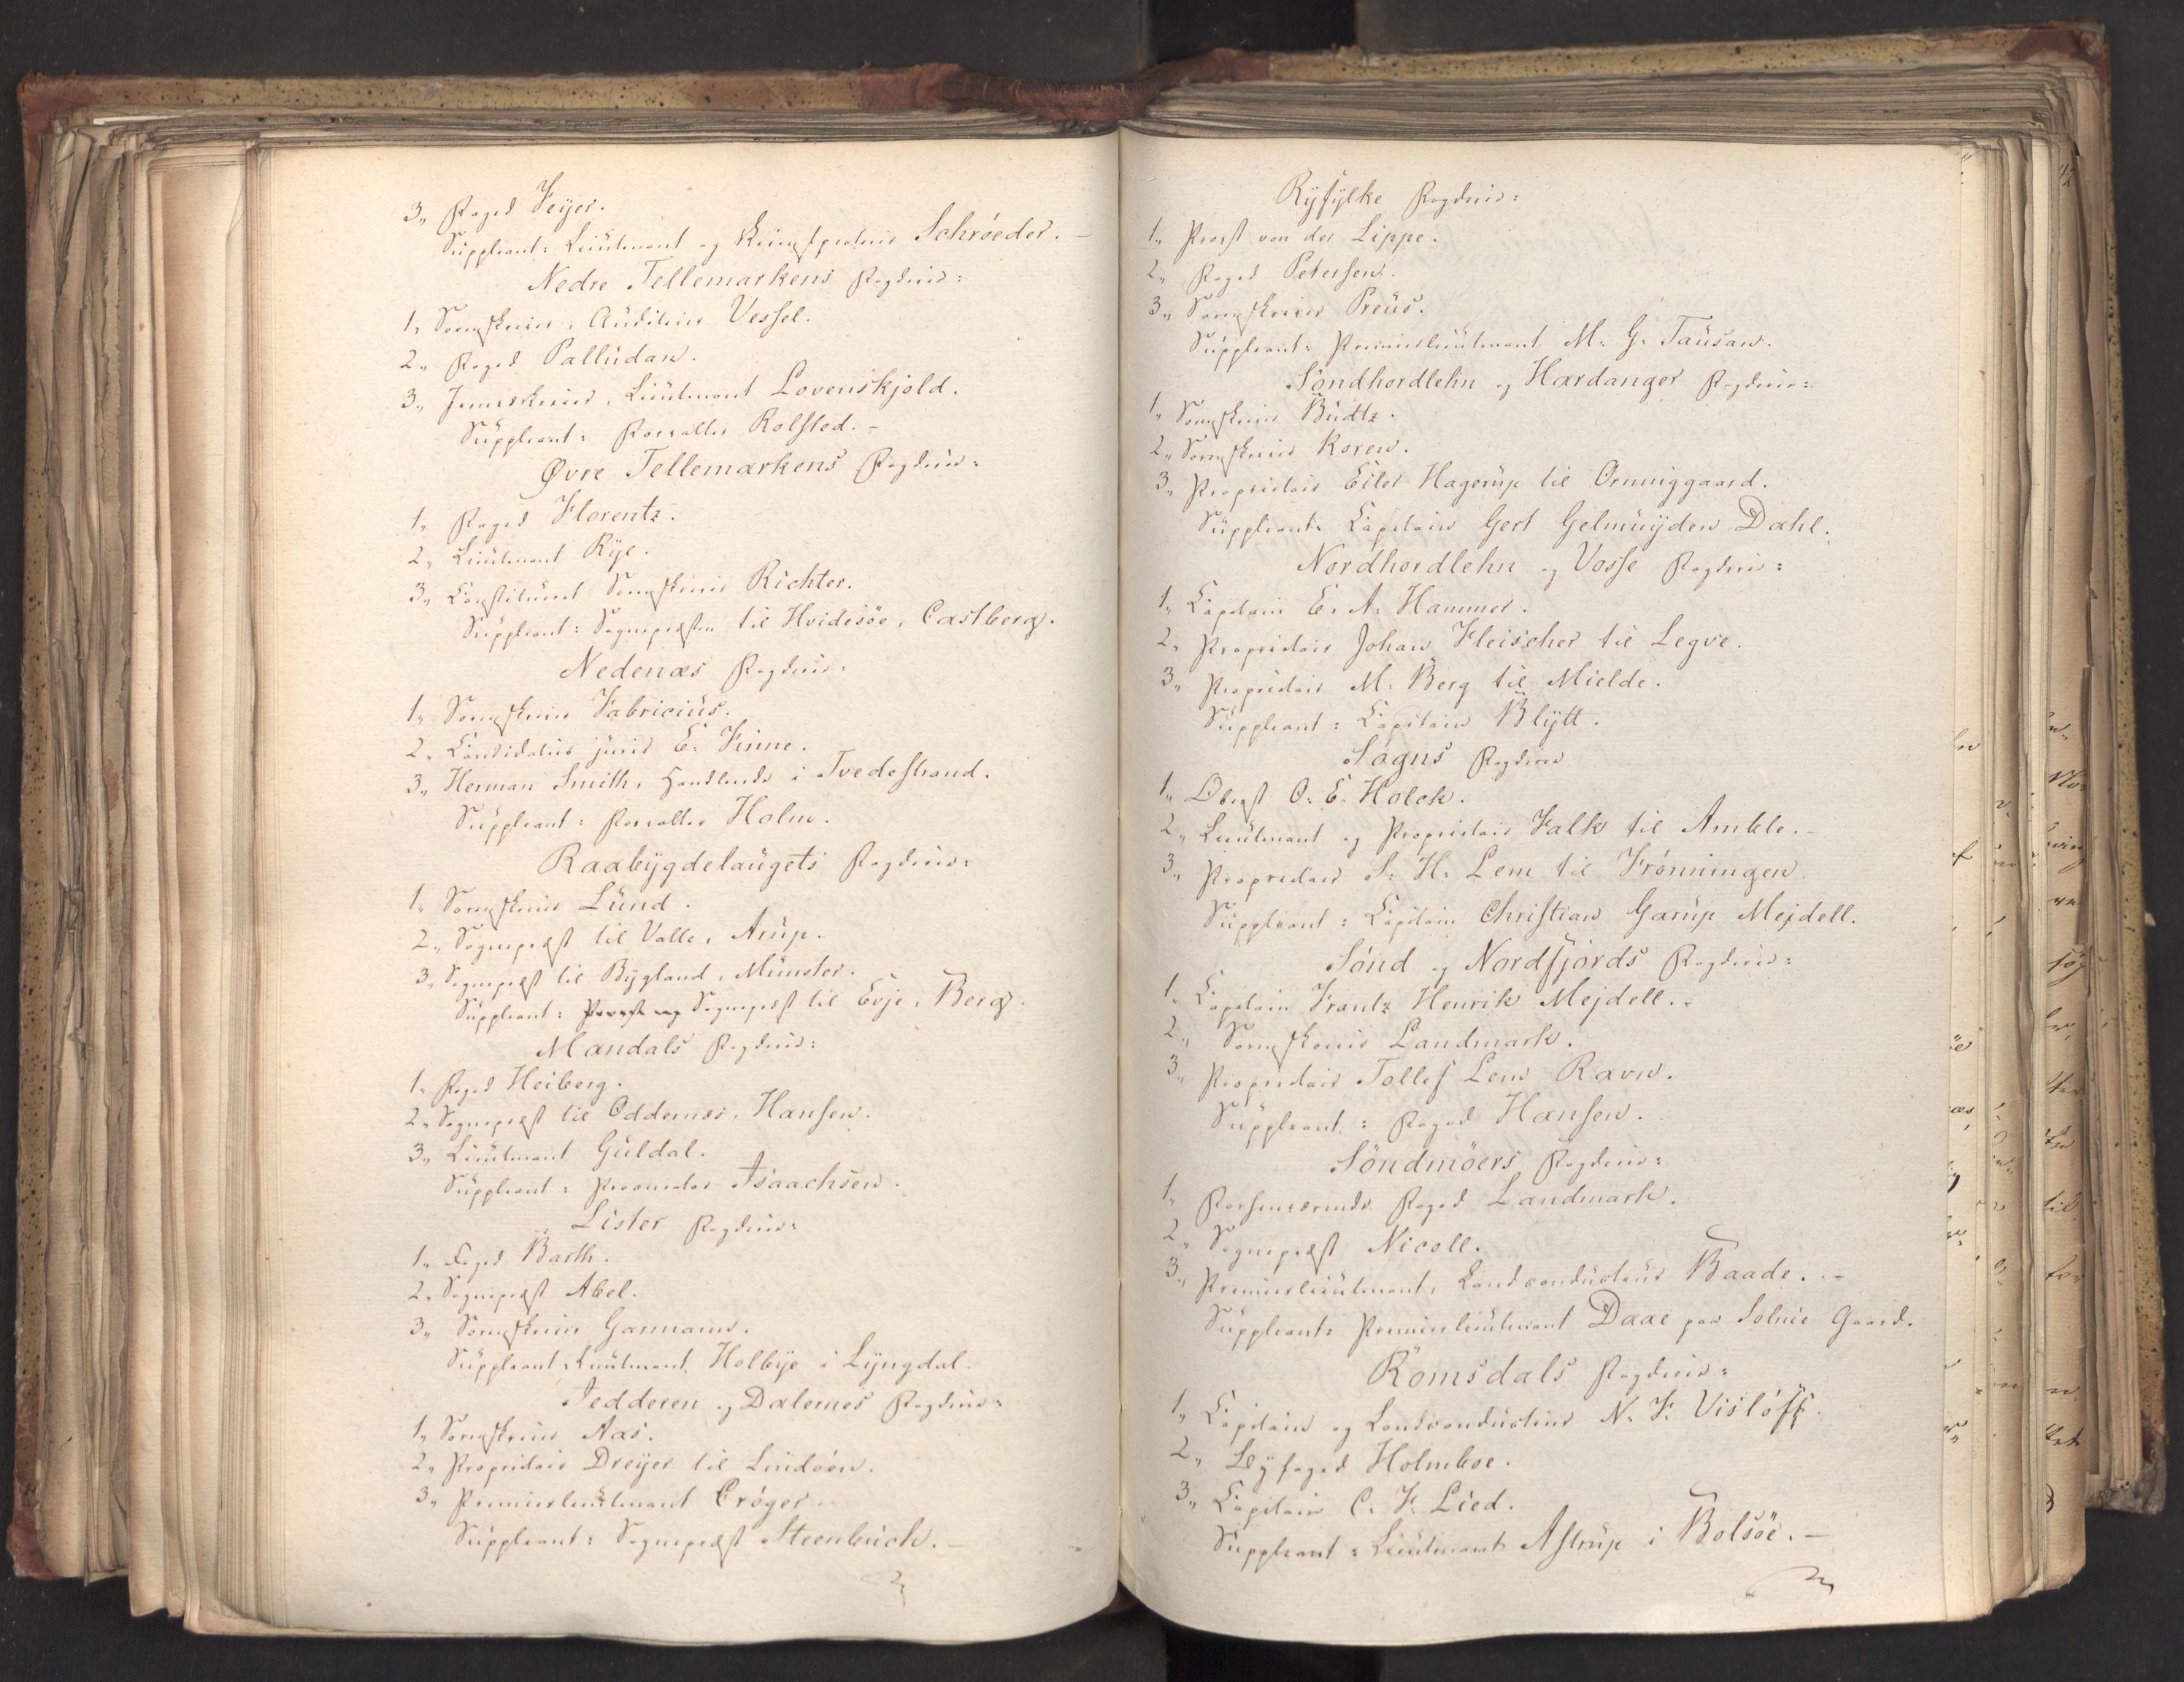 3, Foged Feyer.
Suppleant: Lieutenant og Schröeder. –
Nedre Tellemarkens Fogderie:
1, Sorenskriver, Auditeur Vessel.
2, Foged Palludan.
3, Lieutenant Lovenskjold.
Suppleant: Forvalter Rolsted. –
Øvre Tellemarkens Fogderie:
1, Foged Florentz.
2, Lieutenant Rye.
3, Constitueret Sorenskriver Richter.
Suppleant: Sognepræsten til Hvidesöe, Castberg.
Nedenæs Fogderie:
1, Sorenskriver Fabricius.
2, Candidatus juris E. Finne.
3, Herman Smith, Handlende i Tvedestrand.
Suppleant: Forvalter Holm.
Raabygdelaugets Fogderie:
1, Sorenskriver Lund.
2, Sognepræst til Valle, Arup.
3, Sognepræst til Bygland, Münster.
Suppleant: Provst og Sognepræst til Evje, Berg.
Mandals Fogderie:
1, Foged Heiberg.
2, Sognepræst til Oddernes, Hansen.
3, Lieutenant Guldal.
Suppleant: Isaachsen.
Lister Fogderie:
1, Foged Barth.
2, Sognepræst Abel.
3, Sorenskriver Garmann.
Suppleant: Lieutenant Holbye i Lyngdal.
Jedderen og Dalernes Fogderie:
1, Sorenskriver Aas.
2, Proprietair Dreyer til Lindöen.
3, Premierlieutenant Cröger.
Suppleant: Sognepræst Steenbuch. –
Ryfylke Fogderie:
1, Provst von der Lippe.
2, Foged Petersen.
3, Sorenskriver Preus.
Suppleant: Premierlieutenant M. G. Tausan.
Söndhordlehn og Hardanger Fogderie:
1, Sorenskriver Budtz.
2, Sorenskriver Koren.
3, Proprietair Eiler Hagerup til Ornniggaard.
Suppleant: Capitain Gert Gelmuyden Dahl.
Nordhordlehn og Vosse Fogderie:
1, Capitain E. A. Hammer.
2, Proprietair Johan Fleischer til Legve.
3, Proprietair M. Berg til Mielde.
Suppleant: Capitain Blytt.
Sogns Fogderie
1, Oberst O. E. Holck.
2, Lieutenant og Proprietair Falk til Amble. –
3, Proprietair S. H. Lem til Frönningen.
Suppleant: Capitain Christian Garup Mejdell.
Sönd og Nordfjords Fogderie:
1, Capitain Frantz Henrik Mejdell. –
2, Sorenskriver Landmark.
3, Proprietair Tollef Lem Ravn.
Suppleant: Foged Hansen.
Söndmöers Fogderie:
1, Forhenværende Foged Landmark.
2, Sognepræst Nicoll.
3, Premierlieutenant, Landconducteur Baade. –
Suppleant: Premierlieutenant Daae paa Solnie Gaard.
Romsdals Fogderie:
1, Capitain og Landconducteur N. F. Vislöff.
2, Byfoged Holmboe.
3, Capitain C. F. Lied.
Suppleant: Lieutenant Astrup i Bolsöe. –